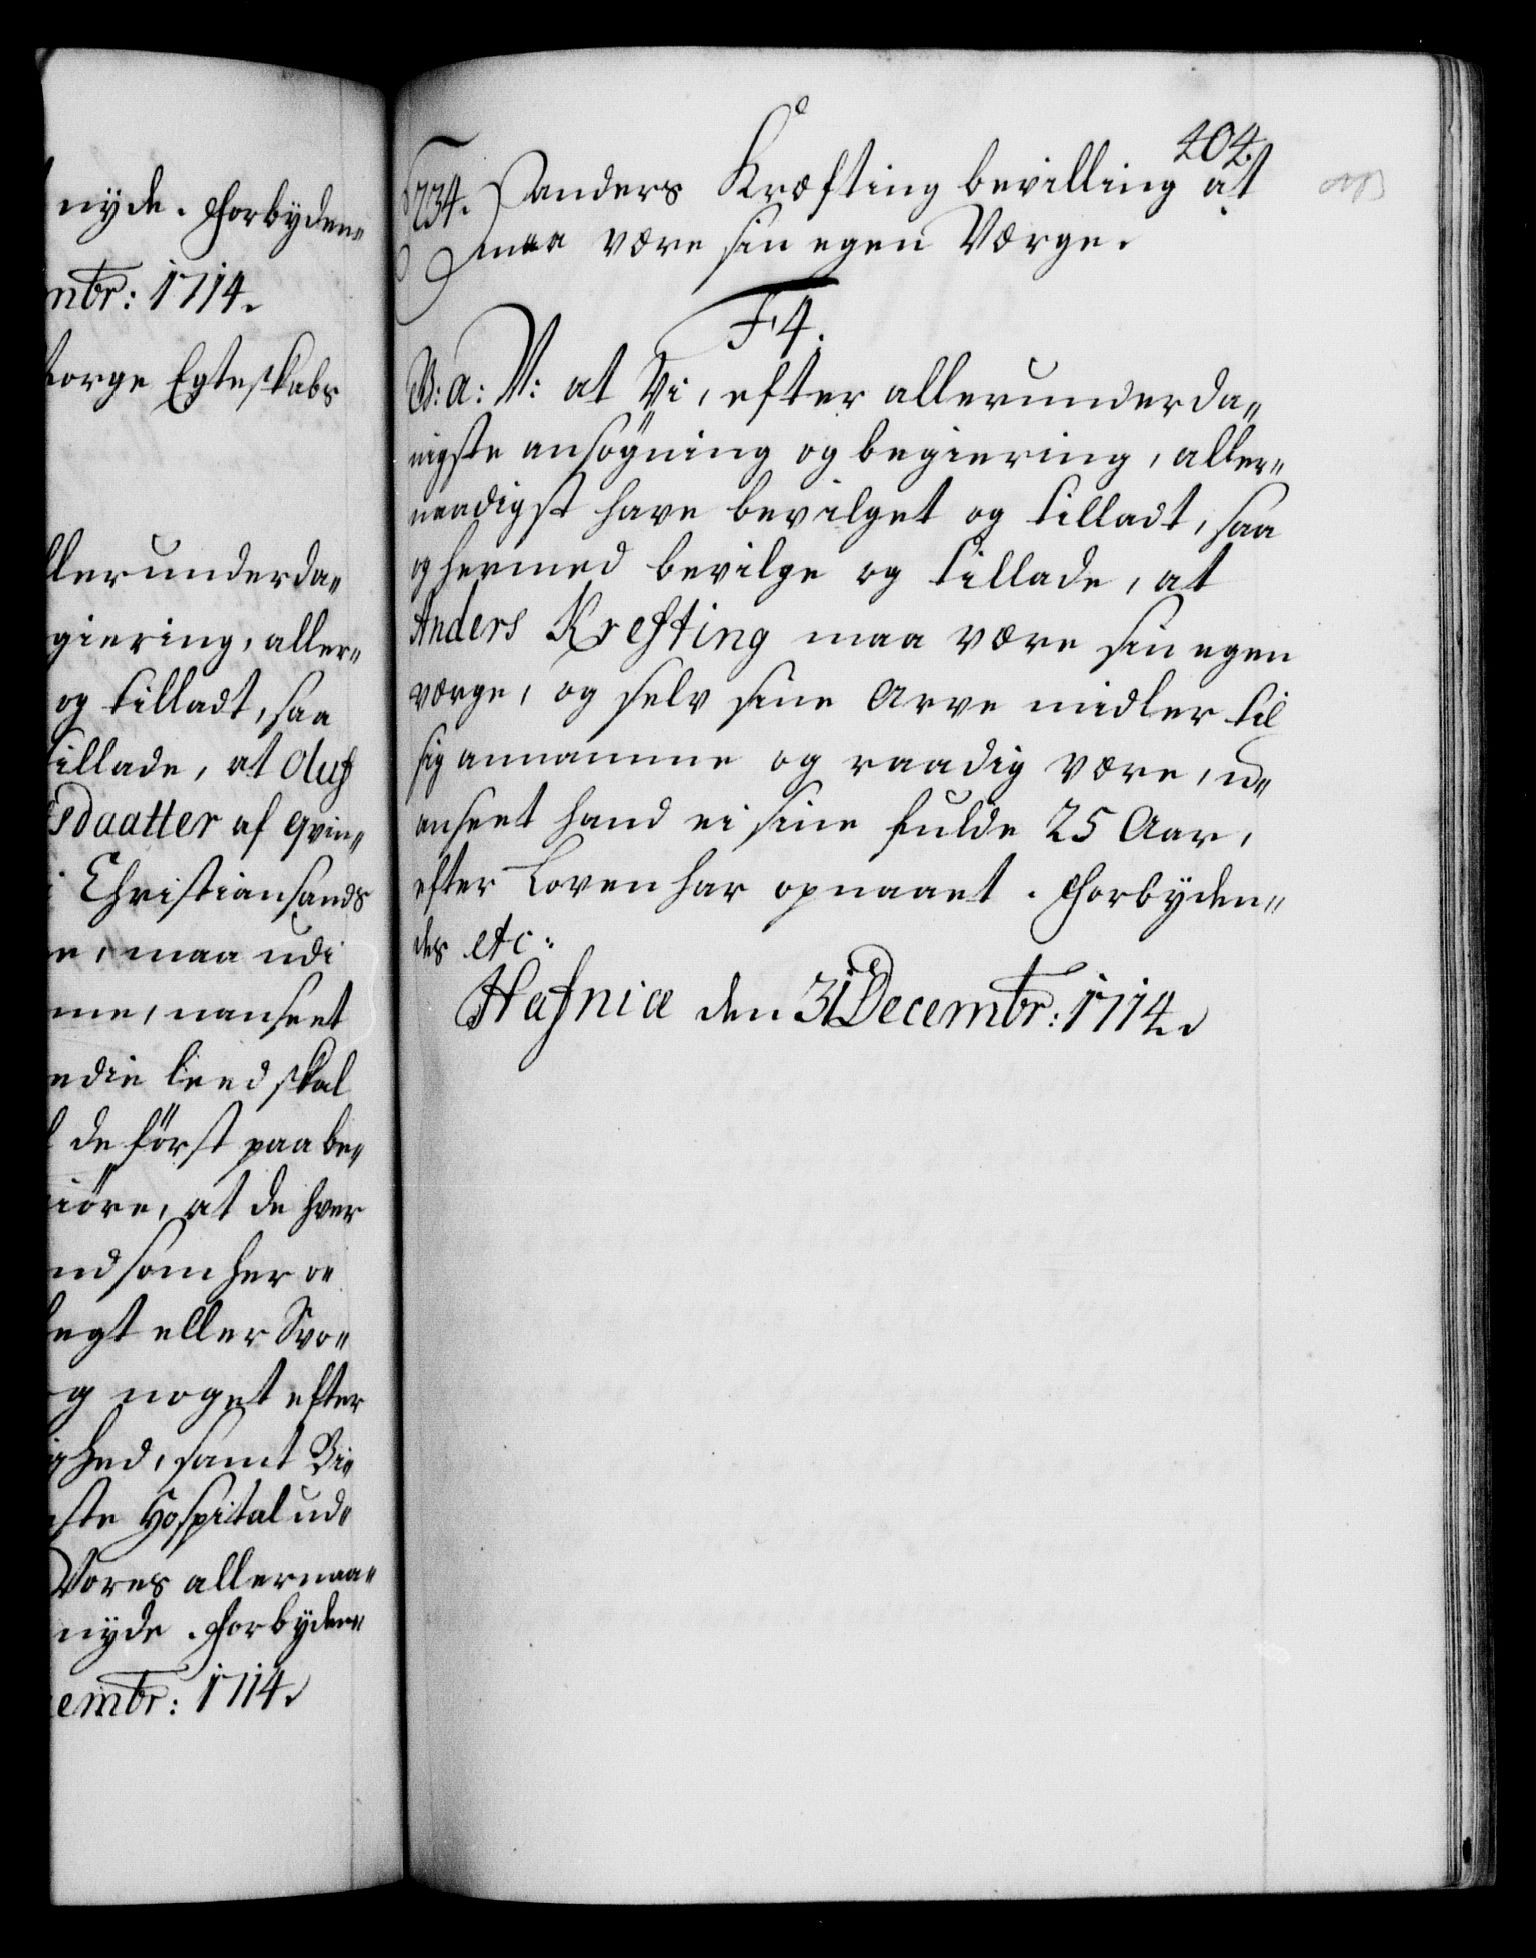 nyde. Forbyden„
mbr: 1714.
torge Egteskabs
llerunderda„
giering, aller„
og tilladt, saa
tillade, at Oluf
sdaatter af Qvin„
i Christiansands
e, maa udi
me, uanseet
edie leed skal
de först paabe„
iöre, at de hver
nd som her er
legt eller Svo„
og noget efter
ighed, samt Bi„
ste Hospital ud„
Vores allernaa„
nyde. Forbyden„
embr: 1714.
404.
234. Anders Kræfting bevilling at
maa være sin egen Værge.
F4.
G: a: V: at Vi, efter allerunderda„
nigste ansögning og begiering, aller„
naadigst have bevilget og tilladt, saa
og hermed bevilge og tillade, at
Anders Krefting maa være sin egen
værge, og selv sine Arve midler til
sig annamme og raadig være, u„
anseet hand ei sine fulde 25 Aar,
efter Loven har opnaaet. Forbyden„
des etc:
Hafniæ den 31 Decembr: 1714.